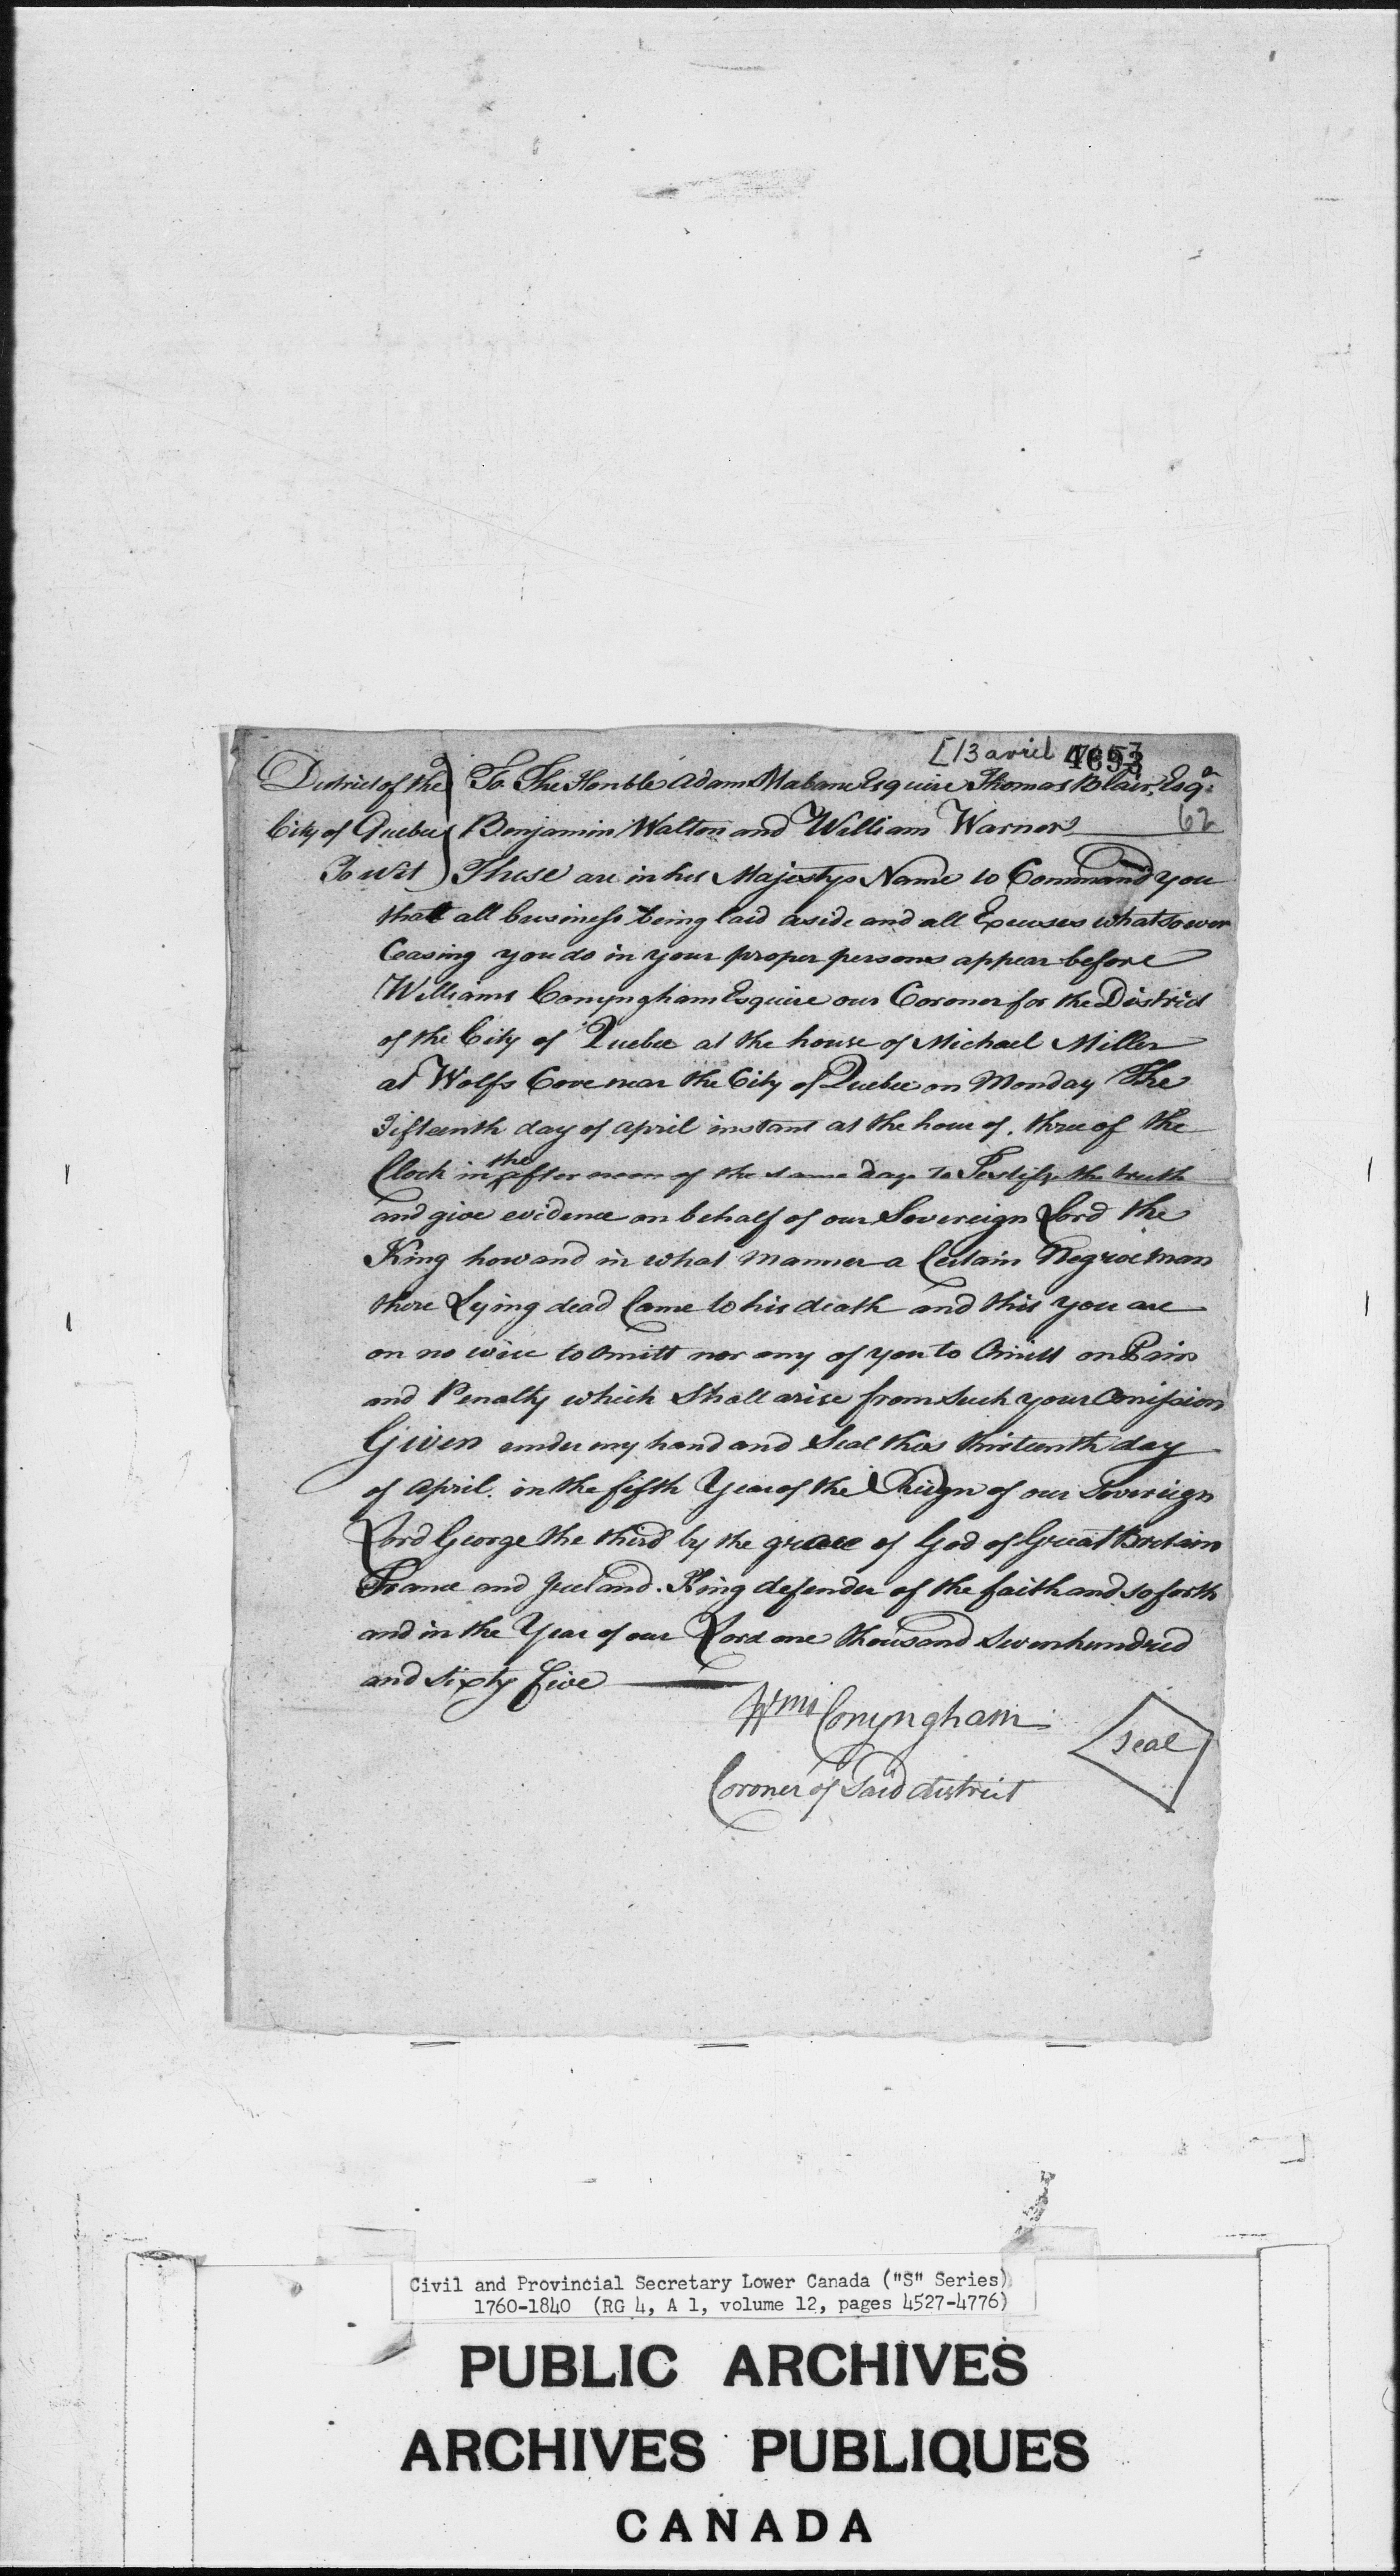 [13 avril 4693
District of the To The Honble Adam Mabane Esquire Thomas Blair, Esqr
62
City of Quebec Benjamin Walton and William Warner
To wit These are in his Majestys Name to Command you
that all business being laid aside and all Excuses whatsoever
Ceasing you do in your proper persons appear before
Williams Conyngham Esquire our Coroner for the District
of the City of Quebec at the house of Michael Miller
at Wolfs Cove near the City of Quebec on Monday The
Fifteenth day of April instant at the hour of three of the
Clock in the after noon of the same day to Testify the truth
and give evidence on behalf of our Sovereign Lord the
King how and in what manner a Certain Negroe man
there Lying dead Came to his death and this you are
on no wise to Omitt nor any of you to Omitt on Pain
and Penalty which Shall arise from such your Omission
Given under my hand and Seal this thirteenth day
of April in the fifth Year of the Reign of our Sovereign
Lord George the third by the grace of God of Great Britain
France and Ireland King defender of the faith and so forth
and in the Year of our Lord one thousand seven hundred
and sixty five
Wms Conyngham
Seal
Coroner of Said district
Civil and Provincial Secretary Lower Canada ("S" Series)
1760-1840 (RG 4, A 1, volume 12, pages 4527-4776)
PUBLIC ARCHIVES
ARCHIVES PUBLIQUES
CANADA